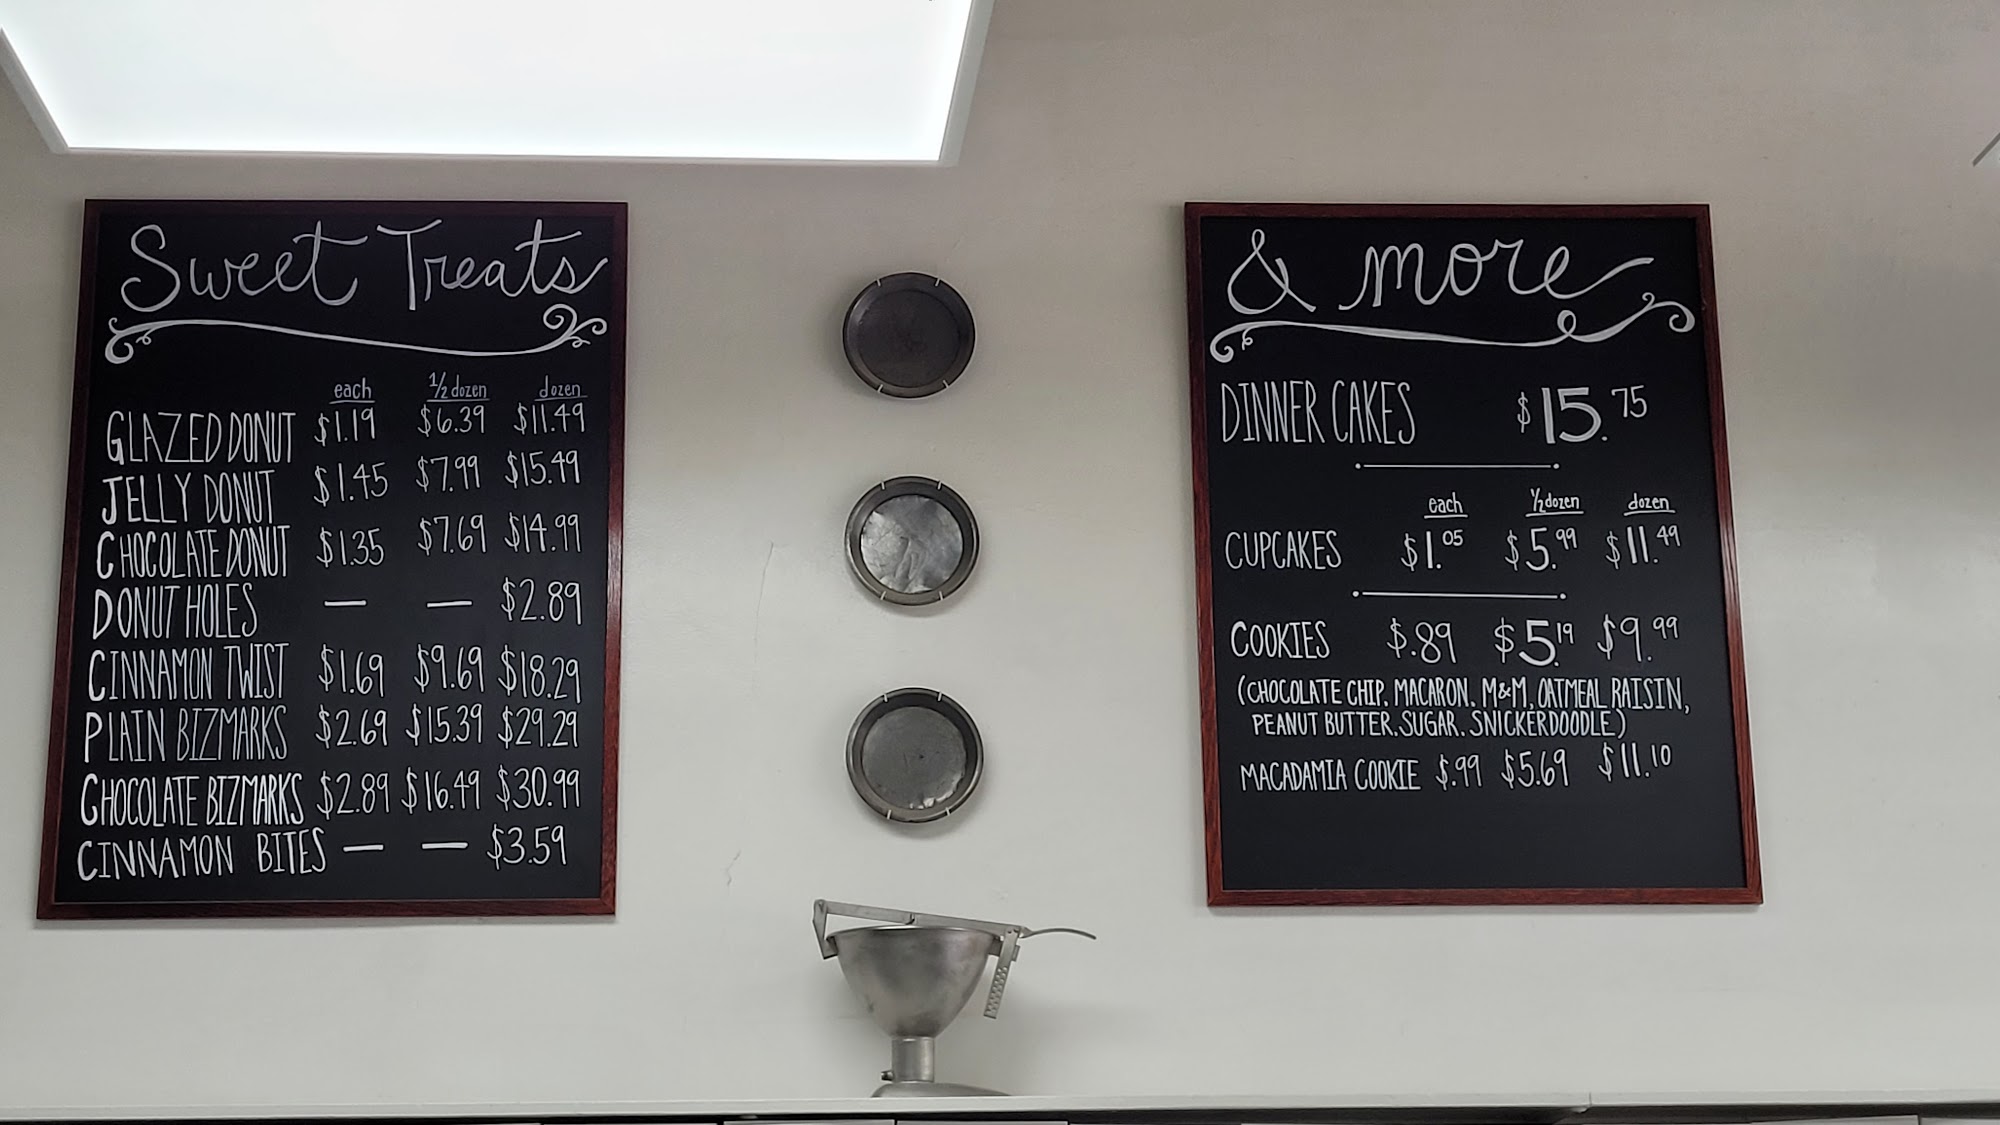 Sweet Treats
each ½ dozen dozen
GLAZED DONUT $1.19 $6.39 $11.49
JELLY DONUT $1.45 $7.99 $15.49
CHOCOLATE DONUT $1.35 $7.69 $14.99
DONUT HOLES — — $2.89
CINNAMON TWIST $1.69 $9.69 $18.29
PLAIN BIZMARKS $2.69 $15.39 $29.29
CHOCOLATE BIZMARKS $2.89 $16.49 $30.99
CINNAMON BITES — — $3.59
& more
DINNER CAKES $15.75
each ½ dozen dozen
CUPCAKES $1.05 $5.99 $11.49
COOKIES $.89 $5.19 $9.99
(CHOCOLATE CHIP, MACARON, M&M, OATMEAL RAISIN,
PEANUT BUTTER, SUGAR, SNICKERDOODLE)
MACADAMIA COOKIE $.99 $5.69 $11.10